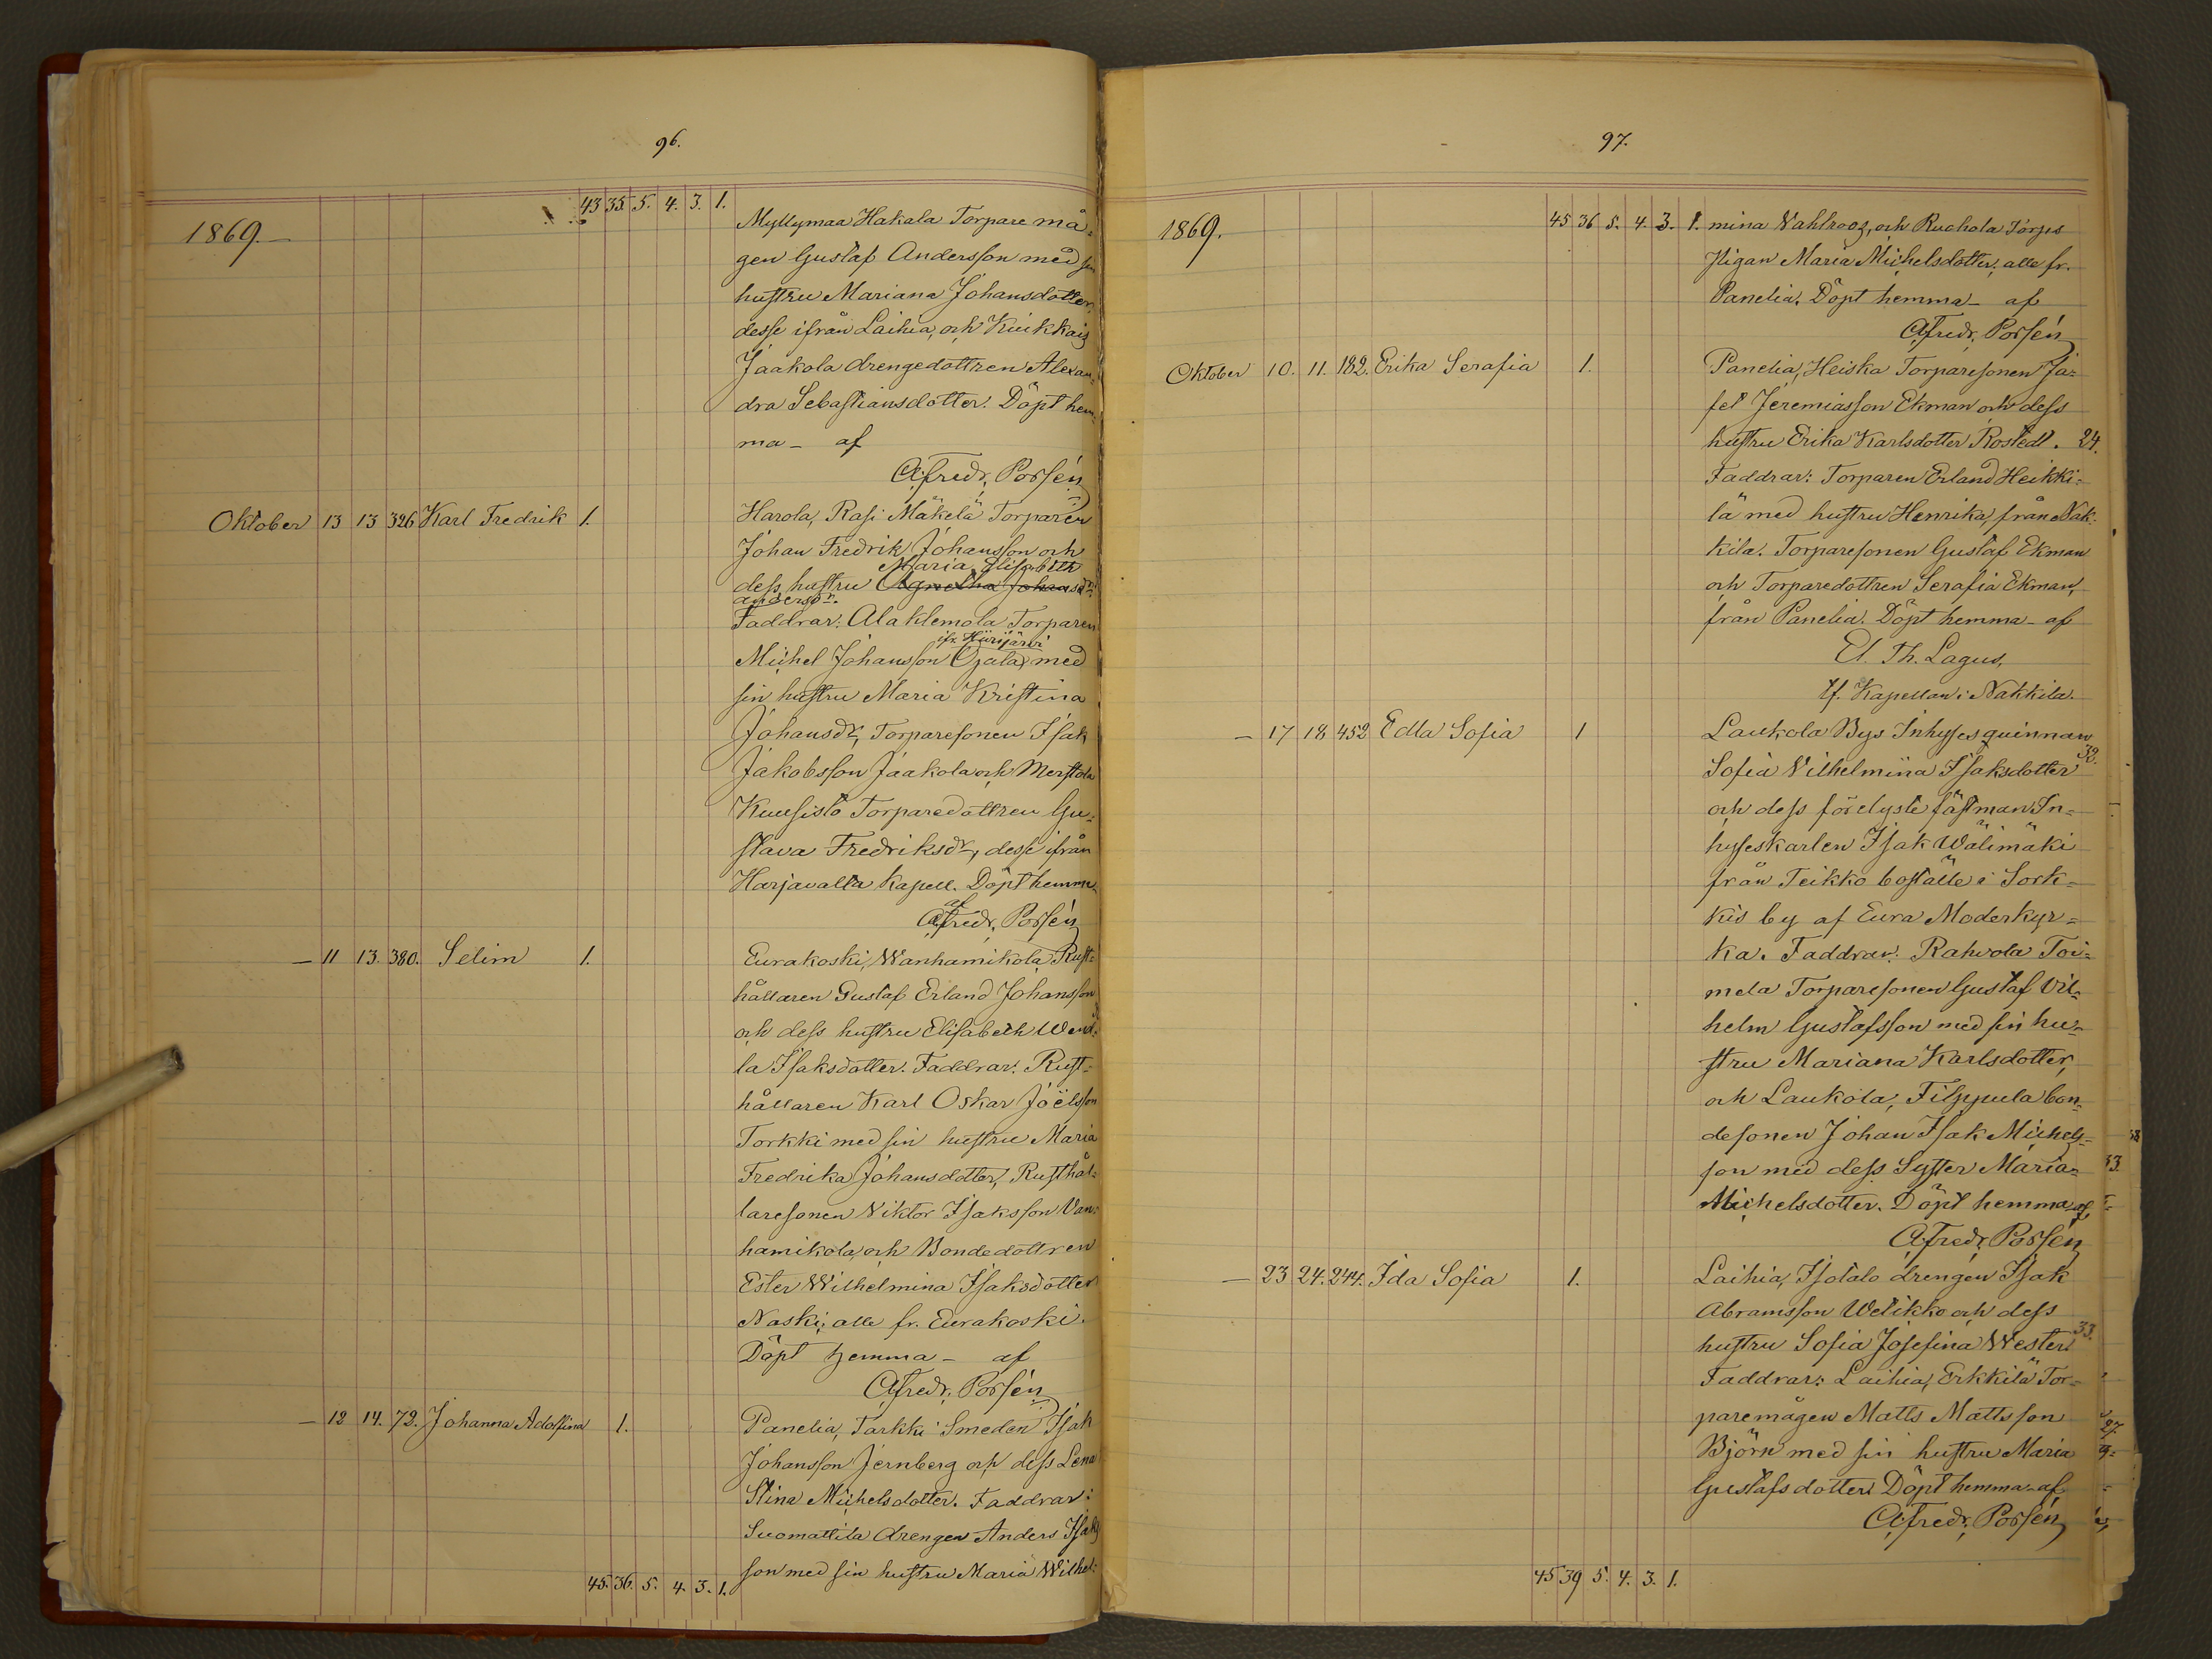 96.
43 35. 5. 4. 3. 1.
1869.
Myllymaa Hakala Torpare må=
gen Gustaf Andersson med sin
hustru Mariana Johansdotter,
desse ifrån Laihia, och Kiukkais
Jaakola drengedottren Alexan=
dra Sebastiansdotter. Döpt hem=
ma – af
A. Fredr. Porsén
Oktober 13 13 326 Karl Fredrik 1. Harola, Rasi Mäkelä Torparen
Johan Fredrik Johansson och
Maria Elisabeth
dess hustru Agnetha Johansdr.
Andersdr.
Faddrar: Ala Klemola Torparen
ifr. Hiirijärvi
Michel Johansson Ojala, med
sin hustru Maria Kristina
Johansdr, Torparesonen Isak
Jakobsson Jaakola och Merstola
Kuusisto Torparedottren Gu=
stava Fredriksdr, desse ifrån
Harjavalta Kapell. Döpt hemma
af
A. Fredr. Porsén
— 11 13. 380. Selim 1. Eurakoski, Wanhamikola Rust=
hållaren Gustaf Erland Johansson
och dess hustru Elisabeth Wend=
la Isaksdotter. Faddrar: Rust=
hållaren Karl Oskar Joëlsson
Torkki med sin hustru Maria
Fredrika Johansdotter, Rusthål=
laresonen Viktor Isaksson Van=
hamikola, och Bondedottren
Ester Wilhelmina Isaksdotter
Naski; alle fr. Eurakoski.
Döpt hemma – af
A. Fredr. Porsén
— 12 14. 72. Johanna Adolfina 1. Panelia, Tarkki Smeden Isak
Johansson Jernberg och dess Lena
Stina Michelsdotter. Faddrar:
Suomattila drengen Anders Isaks
son med sin hustru Maria Wilhel=
45. 36. 5. 4. 3. 1.
97.
45 36 5. 4. 3. 1.
1869.
mina Vahlroos, och Ruohola Torps
Pigan Maria Michelsdotter, alle fr.
Panelia. Döpt hemma – af
A. Fredr. Porsén
Oktober 10. 11. 182. Erika Serafia 1. Panelia, Heiska Torparesonen Ja=
fet Jeremiasson Ekman och dess
hustru Erika Karlsdotter Rostedt. 24.
Faddrar: Torparen Erland Heikki=
lä med hustru Henrika, från Nak=
kila. Torparesonen Gustaf Ekman
och Torparedottren Serafia Ekman,
från Panelia. Döpt hemma – af
El. Th. Lagus,
tf. Kapellan i Nakkila.
— 17 18 452 Edla Sofia 1 Laukola Bys Inhyses quinnan
32.
Sofia Vilhelmina Isaksdotter
och dess förelyste fästman In=
hyseskarlen Isak Wälimäki
från Teikko boställe i Sork=
kis by af Eura Moderkyr=
ka. Faddrar: Rahvola Toi=
mela Torparesonen Gustaf Vil=
helm Gustafsson med sin hu=
stru Mariana Karlsdotter,
och Laukola, Filppula bon=
desonen Johan Isak Michels=
son med dess Syster Maria
Michelsdotter. Döpt hemma af
A. Fredr. Porsén
— 23 24. 244. Ida Sofia 1. Laihia, Isotalo drengen Isak
Abramsson Wetikko och dess
33.
hustru Sofia Josefina Wester.
Faddrar: Laihia, Erkkilä Tor=
paremågen Matts Mattsson
Björn med sin hustru Maria
Gustafsdotter. Döpt hemma – af
A. Fredr. Porsén
45 39 5. 4. 3. 1.